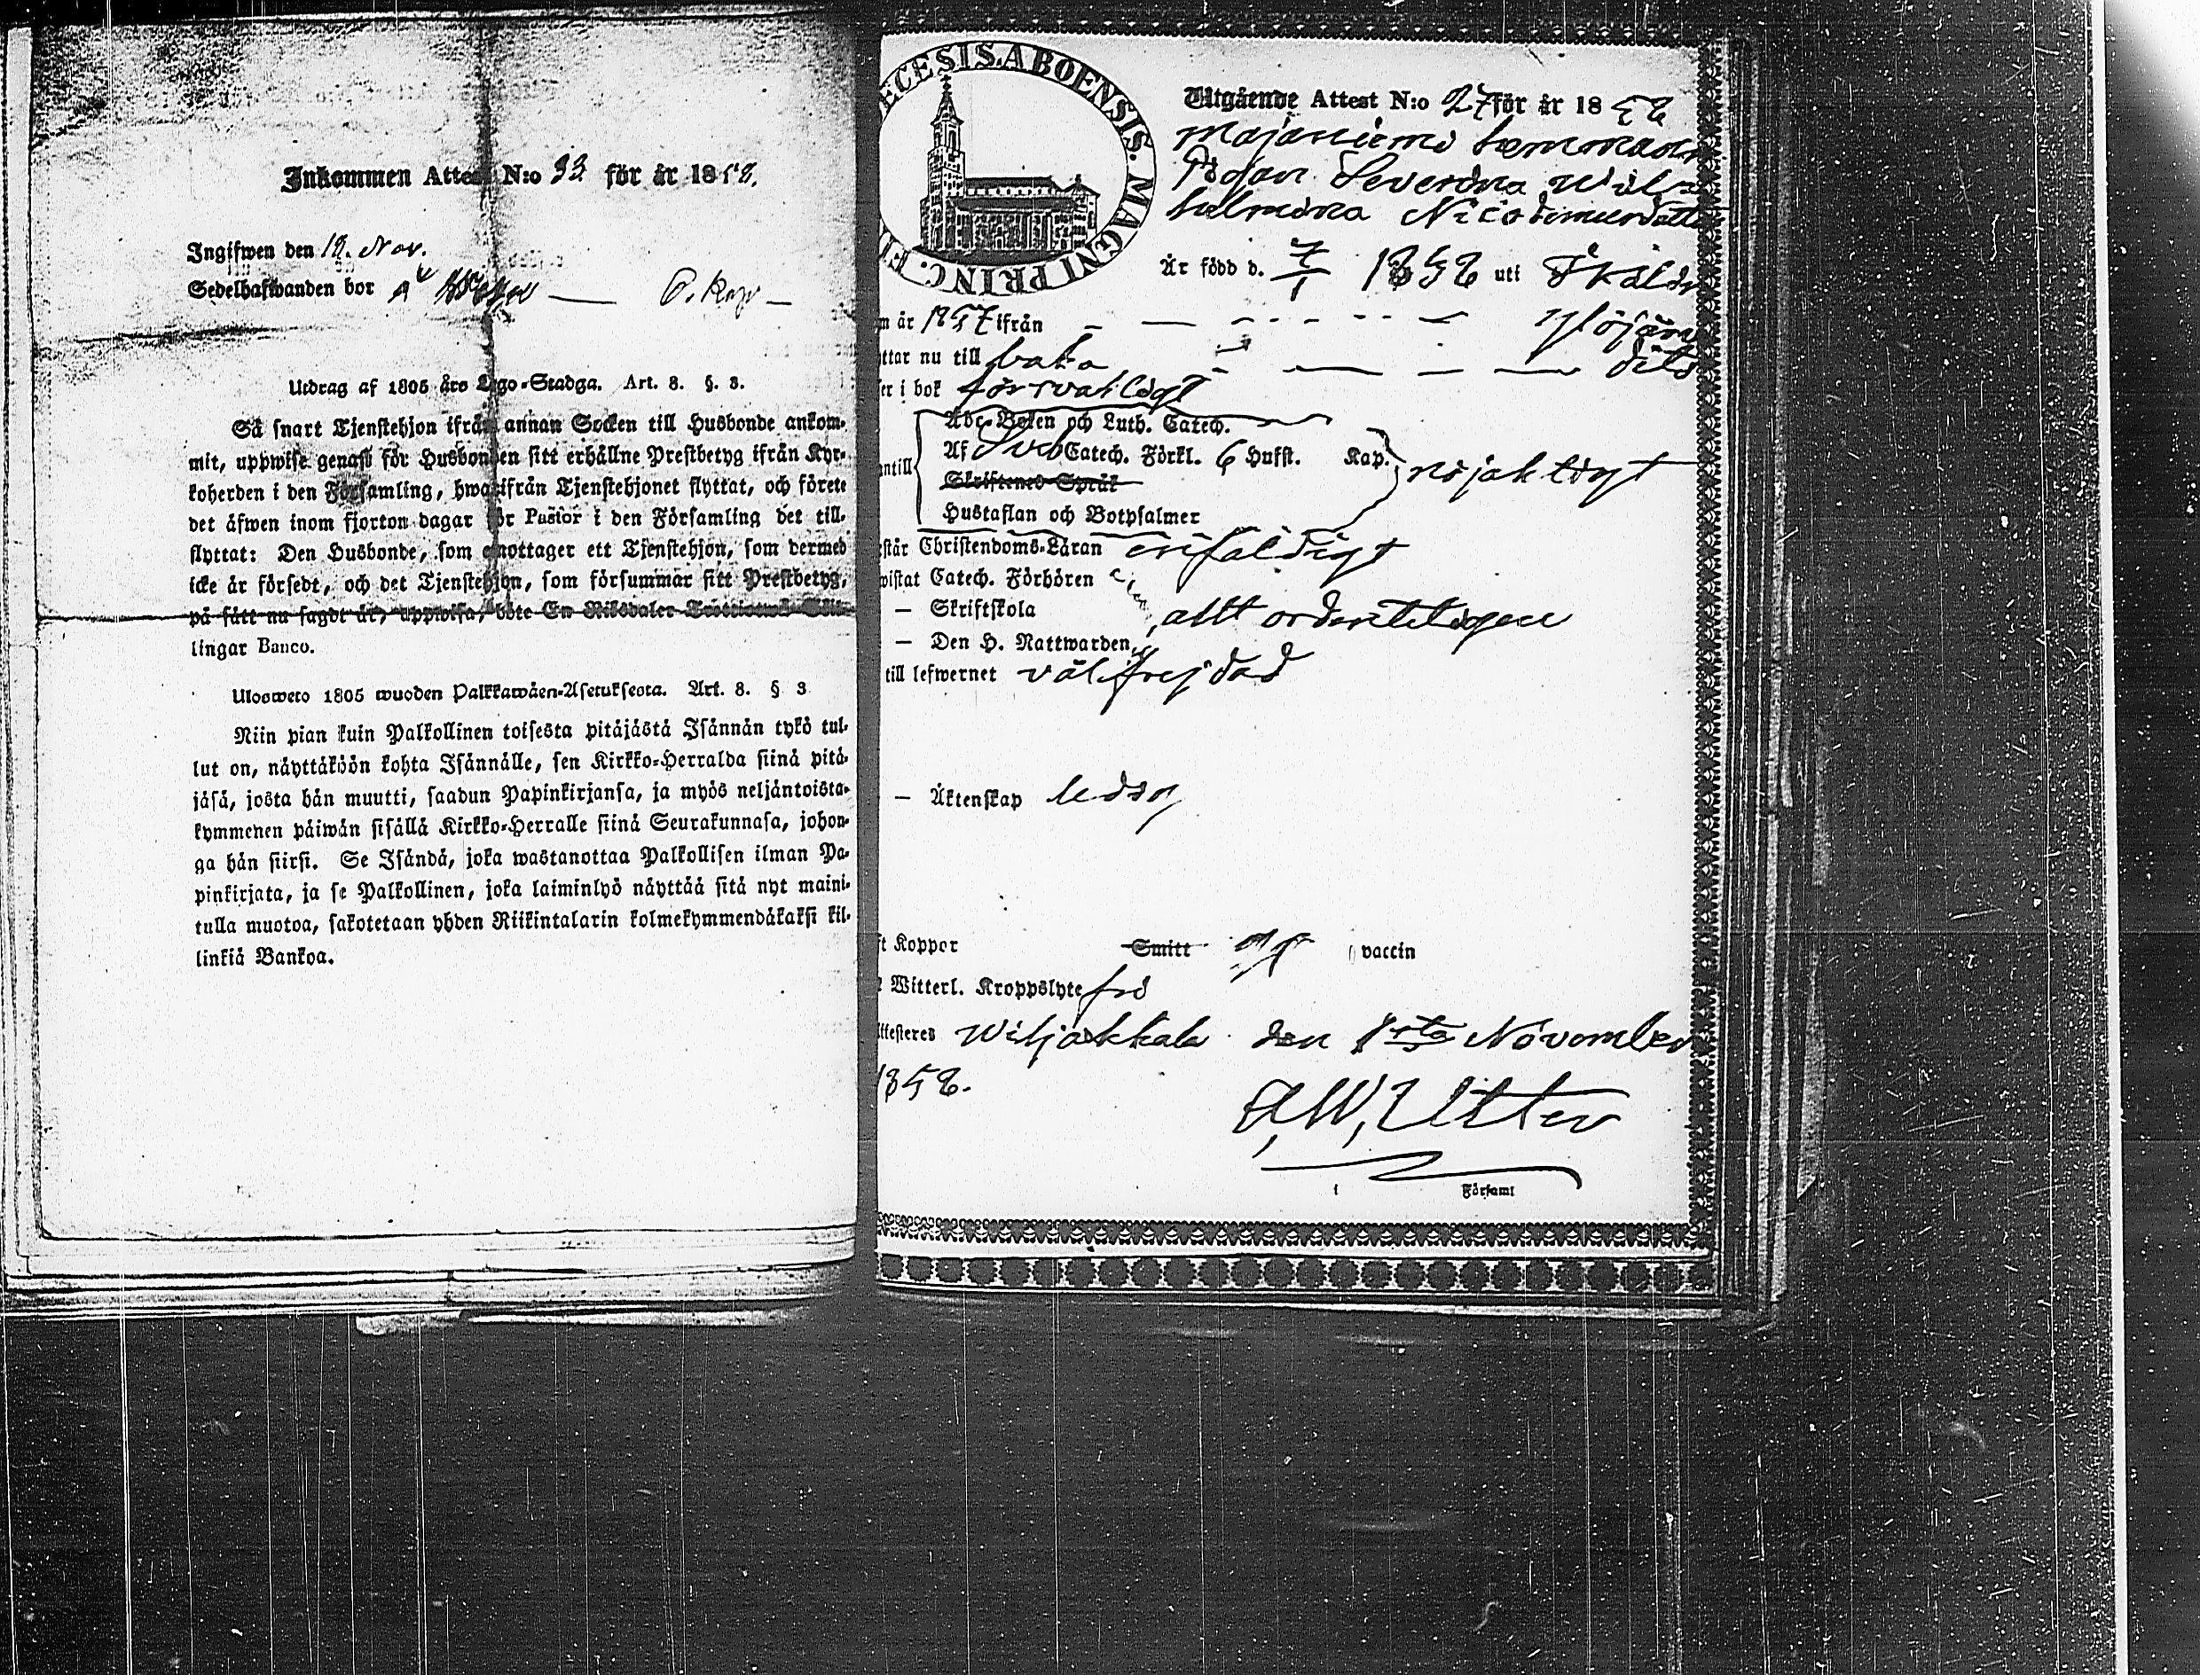 Inkommen Attest N:o 33 för år 1858.
Ingifwen den 18. Nov.
Sedelhafwanden bor På
Utdrag af 1805 års Lego-Stadga. Art. 8. §. 3.
Så snart Tjenstehjon ifrån annan Socken till Husbonde ankom-
mit, uppwise genast för Husbonden sitt erhållne Prestbetyg ifrån Kyr-
koherden i den Församling, hwarifrån Tjenstehjonet flyttat, och förete
det äfwen inom fjorton dagar för Pastor i den Församling det till-
flyttat: Den Husbonde, som emottager ett Tjenstehjon, som dermed
icke är försedt, och det Tjenstehjon, som försummar sitt Prestbetyg,
på sätt nu sagdt är, uppwisa, böte En Riksdaler Trettiotwå Skil-
lingar Banco.
Ulosweto 1805 wuoden Palkkawäen-Asetuksesta. Art. 8. § 3
Niin pian kuin Palkollinen toisesta pitäjästä Isännän tykö tul-
lut on, näyttäköön kohta Isännälle, sen Kirkko-Herralda siinä pitä-
jäsä, josta hän muutti, saadun Papinkirjansa, ja myös neljäntoista-
kymmenen päiwän sisällä Kirkko-Herralle siinä Seurakunnasa, johon-
ga hän siirsi. Se Isändä, joka wastanottaa Palkollisen ilman Pa-
pinkirjata, ja se Palkollinen, joka laiminlyö näyttää sitä nyt maini-
tulla muotoa, sakotetaan yhden Riikintalarin kolmekymmendäkaksi kil-
linkiä Bankoa.
ECESIS. ABOENSIS. MAGNI PRINC. FI
Utgående Attest N:o 27 för år 1858
Majaniemi hemmans
Pigan Severina Wil-
helmina Nicodemusdotter
Är född d. 7/1 1838 uti
m år 1857 ifrån - - - - - - Ylöjärvi
ttar nu till baka - - - - dito
er i bok försvarligt
Abc-Boken och Luth. Catech.
Af Sveb Catech. Förkl. 6 Hufst. Kap.
antill nöjaktigt
Skriftenes Språk
Hustaflan och Botpsalmer
står Christendoms-Läran enfaldigt
wistat Catech. Förhören
— Skriftskola allt ordentligen
— Den H. Nattwarden
till lefwernet välfrejdad
— Äktenskap ledig
t Koppor Smitt vaccin
Witterl. Kroppslyte fri
ttesteres Wiljakkala den 1sta November
1858.
A, W, Utter
i Församl